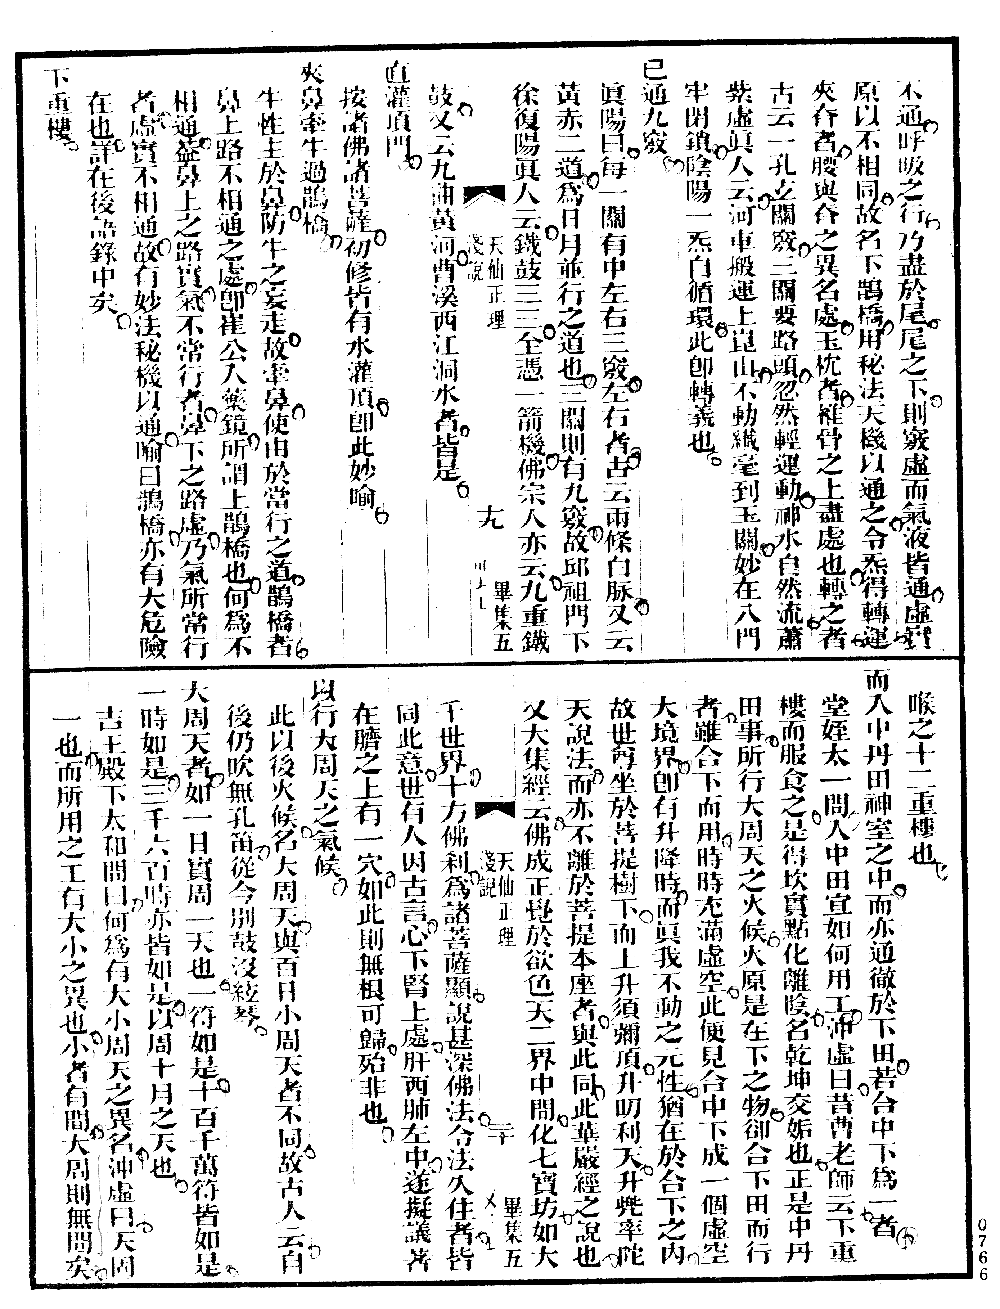 不通呼吸之行乃盡於尾尾之下則竅虛而氣液皆通虛實
原以不相同故名下鵲橋用秘法天機以通之令炁得轉運
夾脊者腰與脊之異名處玉枕者椎骨之上盡處也轉之者
古云一孔玄關竅三關要路頭忽然輕運動神水自然流蕭
紫虛眞人云河車搬運上崑山不動纖毫到玉關妙在八門
牢閉鎖陰陽一炁自循環此卽轉義也
已通九竅
眞陽曰每一關有中左右三竅左右者古云兩條白脉又云
黃赤二道爲日月並行之道也三關則有九竅故邱祖門下
徐復陽眞人云鐵鼓三三全憑一箭機佛宗人亦云九重鐵
天仙正理
淺說
十九
畢集五
鼓又云九曲黃河曹溪西江洞水者皆是
直灌頂門
按諸佛諸菩薩初修皆有水灌頂卽此妙喻
夾鼻牽牛過鵲橋
牛性主於鼻防牛之妄走故牽鼻使由於當行之道鵲橋者
鼻上路不相通之處卽崔公入藥鏡所謂上鵲橋也何爲不
相通蓋鼻上之路實氣不常行者鼻下之路虛乃氣所常行
者虛實不相通故有妙法秘機以通喻曰鵲橋亦有大危險
在也詳在後語錄中矣
下重樓
喉之十二重樓也
而入中丹田神室之中而亦通徹於下田若合中下爲一者
堂姪太一問人中田宜如何用工沖虛曰昔曹老師云下重
樓而服食之是得坎實點化離陰名乾坤交姤也正是中丹
田事所行大周天之火候火原是在下之物卻合下田而行
者雖合下而用時時充滿虛空此便見合中下成一個虛空
大境界卽有升降時而眞我不動之元性猶在於合下之內
故世尊坐於菩提樹下而上升須彌頂升忉利天升兜率陀
天說法而亦不離於菩提本座者與此同此華嚴經之說也
又大集經云佛成正覺於欲色天二界中間化七寶坊如大
天仙正理
淺說
二十
畢集五
千世界十方佛刹爲諸菩薩顯說甚深佛法令法久住者皆
同此意世有人因古言心下腎上處肝西肺左中遂擬議著
在臍之上有一穴如此則無根可歸殆非也
以行大周天之氣候
此以後火候名大周天與百日小周天者不同故古人云自
後仍吹無孔笛從今別鼓沒絃琴
大周天者如一日實周一天也一符如是十百千萬符皆如是
一時如是三千六百時亦皆如是以周十月之天也
古王殿下太和問曰何爲有大小周天之異名沖虛曰天固
一也而所用之工有大小之異也小者有間大周則無間矣
0766